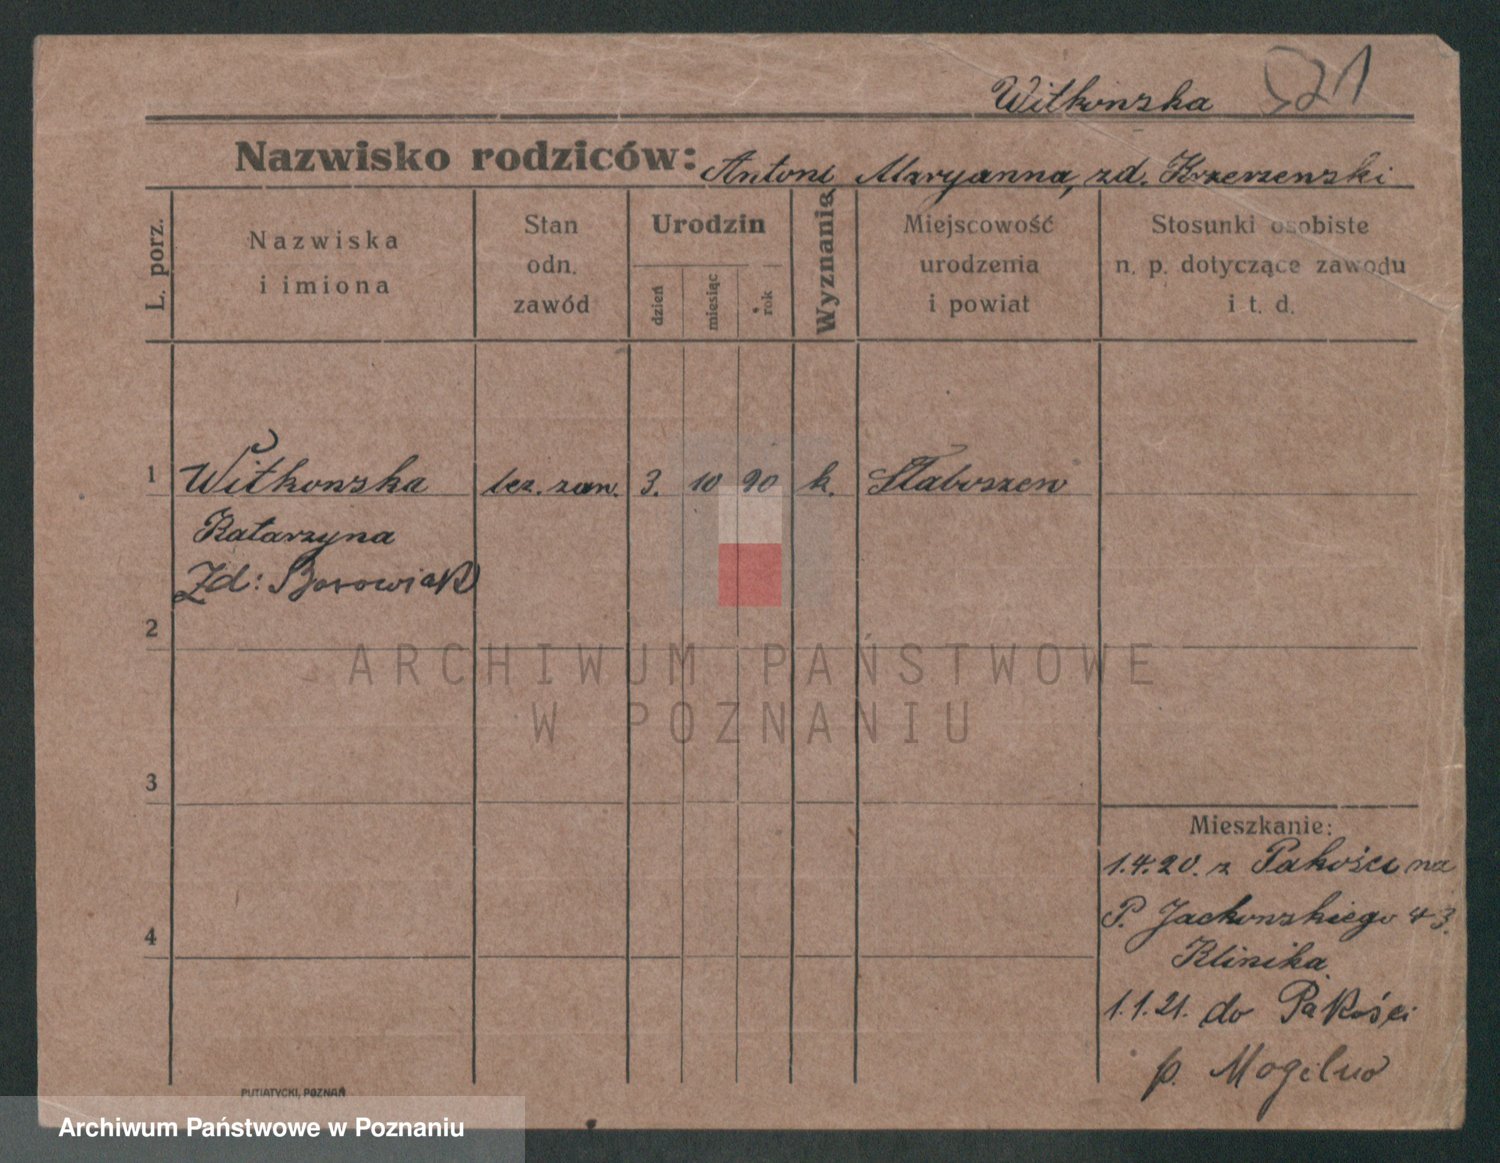 Witkowska 21
Nazwisko rodziców: Antoni Maryanna, zd. Krzerzewski
L. porz.
Nazwiska
i imiona
Stan
odn.
zawód
Urodzin
dzień
miesiąc
rok
Wyznanie
Miejscowość
urodzenia
i powiat
Stosunki osobiste
n. p. dotyczące zawodu
i t. d.
1 Witkowska bez. zaw. 3. 10 90 k. Słaboszew
Katarzyna
Zd: Borowiak
2
3
4
Mieszkanie:
1.4.20. z Pakości na
P. Jackowskiego 43.
Klinika
1.1.21. do Pakości
p. Mogilno
PUTIATYCKI, POZNAŃ
ARCHIWUM PAŃSTWOWE
W POZNANIU
Archiwum Państwowe w Poznaniu